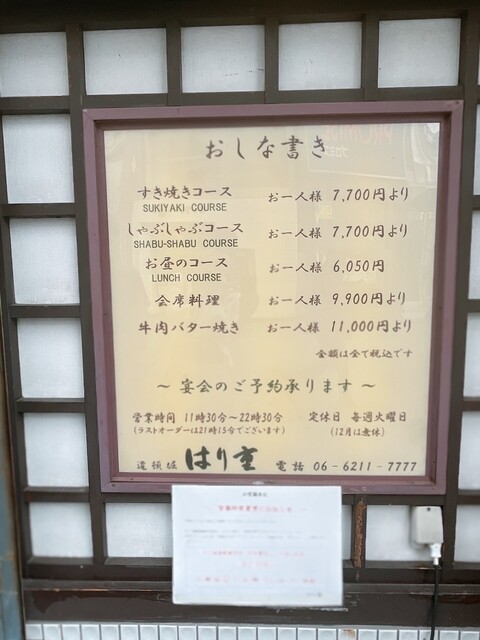 おしな書き
すき焼きコース お一人様 7,700円より
SUKIYAKI COURSE
しゃぶしゃぶコース お一人様 7,700円より
SHABU-SHABU COURSE
お昼のコース お一人様 6,050円
LUNCH COURSE
会席料理 お一人様 9,900円より
牛肉バター焼き お一人様 11,000円より
金額は全て税込です
～ 宴会のご予約承ります ～
営業時間 11時30分～22時30分 定休日 毎週火曜日
(ラストオーダーは21時15分でございます) (12月は無休)
道頓堀 はり重 電話 06-6211-7777